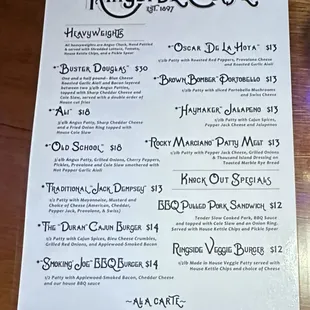 EST. 1997
HEAVYWEIGHTS
All heavyweights are Angus Chuck, Hand Pattied
& served with Shredded Lettuce, Tomato,
House Kettle Chips, and a Pickle Spear
"BUSTER DOUGLAS" $30
One and a half pound- Blue Cheese
Roasted Garlic Aioli and Bacon layered
between two 3/4lb Angus Patties,
topped with Sharp Cheddar Cheese and
Cole Slaw, served with a double order of
House cut fries
"ALI" $18
3/4lb Angus Patty, Sharp Cheddar Cheese
and a Fried Onion Ring topped with
House Cole Slaw
"OLD SCHOOL" $18
3/4lb Angus Patty, Grilled Onions, Cherry Peppers,
Pickles, Provolone and Cole Slaw smothered with
Hot Pepper Garlic Aioli
"TRADITIONAL" JACK DEMPSEY" $13
1/2 Patty with Mayonnaise, Mustard and
Choice of Cheese (American, Cheddar,
Pepper Jack, Provolone, & Swiss)
THE "DURAN" CAJUN BURGER $14
1/2 Patty with Cajun Spices, Bleu Cheese Crumbles,
Grilled Red Onions, and Applewood Smoked Bacon
"SMOKING JOE" BBQ BURGER $14
1/2 Patty with Applewood-Smoked Bacon, Cheddar Cheese
and our house BBQ sauce
"OSCAR DE LA HOYA" $13
1/2lb Patty with Roasted Red Peppers, Provolone Cheese
and Roasted Garlic Aioli
"BROWN BOMBER" PORTOBELLO $13
1/2lb Patty with sliced Portobello Mushrooms
and Swiss Cheese
"HAYMAKER" JALAPENO $13
1/2lb Patty with Cajun Spices,
Pepper Jack Cheese and Jalapenos
"ROCKY MARCIANO" PATTY MELT $13
1/2lb Patty with Pepper Jack Cheese, Grilled Onions
& Thousand Island Dressing on
Toasted Marble Rye Bread
KNOCK OUT SPECIALS
BBQ PULLED PORK SANDWICH $12
Tender Slow Cooked Pork, BBQ Sauce
and topped with Cole Slaw and an Onion Ring.
Served with House Kettle Chips and Pickle Spear
RINGSIDE VEGGIE BURGER $12
1/2lb Made in House Veggie Patty served
with House Kettle Chips and choice of Cheese
~ALA CARTE~